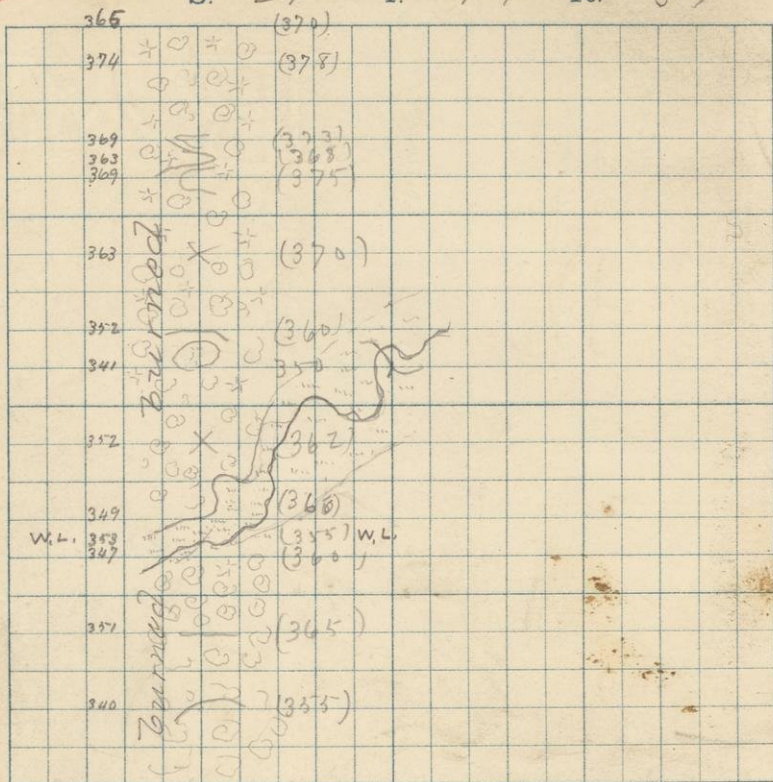 S. T. R.
365 (370)
374 (378)
369 (373)
363 (368)
369 (375)
363 (370)
352 (360)
341 350
352 (362)
349 (360)
W.L. 353 (355) W.L.
347 (360)
351 (365)
340 (355)
Burned
Burned